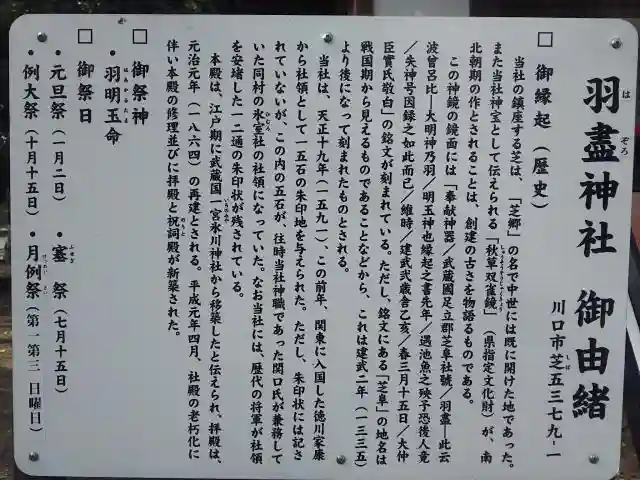 羽盡神社 御由緒
川口市芝五三七九-一
□ 御縁起（歴史）
当社の鎮座する芝は、「芝郷」の名で中世には既に開けた地であった。
また当社神宝として伝えられる「秋草双雀鏡」（県指定文化財）が、南
北朝期の作とされることは、創建の古さを物語るものである。
この神鏡の鏡面には「奉献神器／武蔵國足立郡芝阜社號／羽盡―此云
波曾呂比―大明神乃羽／明玉神也縁起之書先年／遇池魚之殃予恐後人竟
／失神号因録之如此而已／維時／建武貳歳舎乙亥／春三月十五日／大仲
臣實氏敬白」の銘文が刻まれている。ただし、銘文にある「芝阜」の地名は
戦国期から見えるものであることなどから、これは建武二年（一三三五）
より後になって刻まれたものとされる。
当社は、天正十九年（一五九一）、この前年、関東に入国した徳川家康
から社領として一五石の朱印地を与えられた。ただし、朱印状には記さ
れていないが、この内の五石が、往時当社神職であった関口氏が兼務して
いた同村の氷室社の社領になっていた。なお当社には、歴代の将軍が社領
を安堵した一二通の朱印状が残されている。
本殿は、江戸期に武蔵国一宮氷川神社から移築したと伝えられ、拝殿は、
元治元年（一八六四）の再建とされる。平成元年四月、社殿の老朽化に
伴い本殿の修理並びに拝殿と祝詞殿が新築された。
□ 御祭神
・羽明玉命
□ 御祭日
・元旦祭（一月二日） ・塞祭（七月十五日）
・例大祭（十月十五日） ・月例祭（第一第三日曜日）